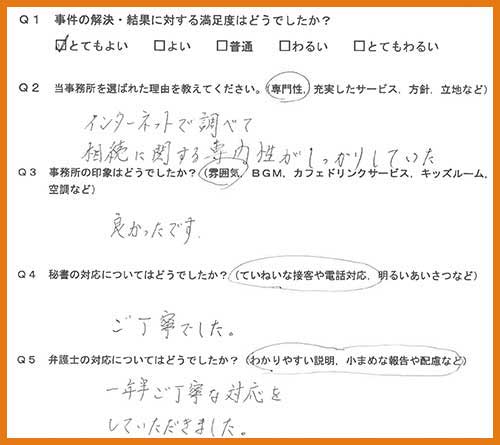 Q1 事件の解決・結果に対する満足度はどうでしたか？
☑とてもよい □よい □普通 □わるい □とてもわるい
Q2 当事務所を選ばれた理由を教えてください。（専門性，充実したサービス，方針，立地など）
インターネットで調べて
相続に関する専門性がしっかりしていた
Q3 事務所の印象はどうでしたか？（雰囲気，BGM，カフェドリンクサービス，キッズルーム，
空調など）
良かったです．
Q4 秘書の対応についてはどうでしたか？（ていねいな接客や電話対応，明るいあいさつなど）
ご丁寧でした。
Q5 弁護士の対応についてはどうでしたか？（わかりやすい説明，小まめな報告や配慮など）
一年半ご丁寧な対応を
していただきました。